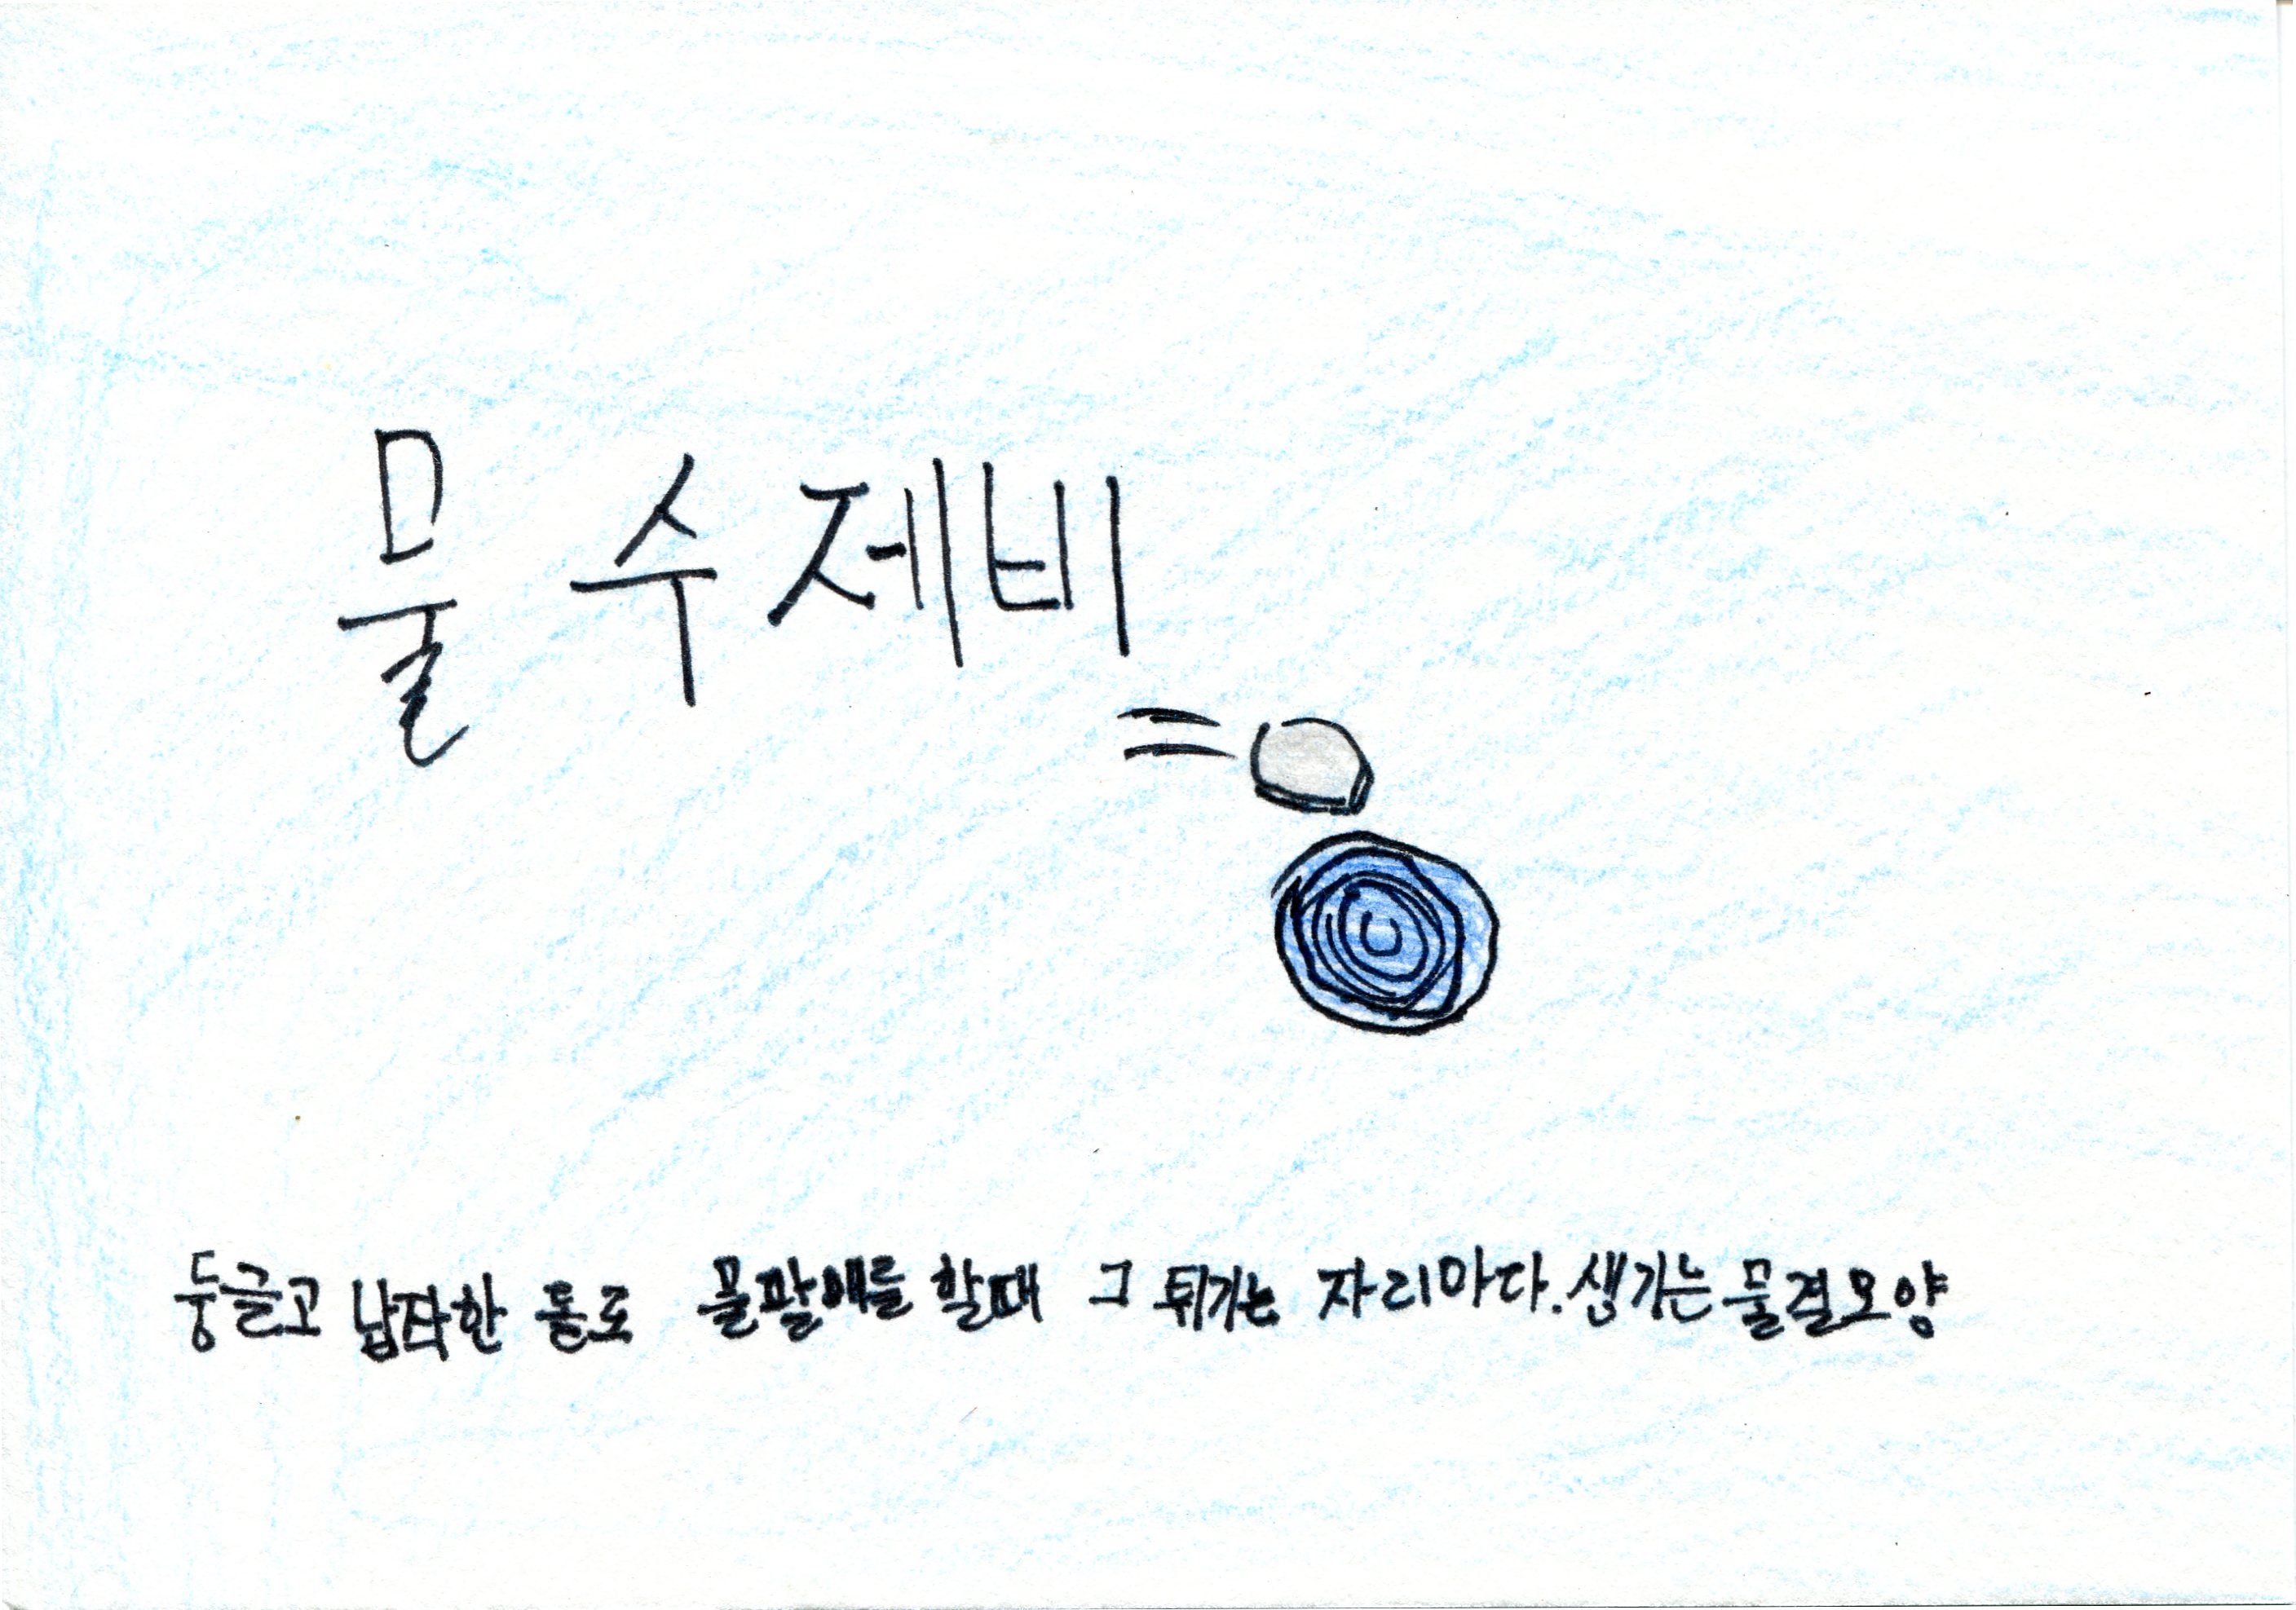 물수제비
둥글고 납작한 돌로 물팔매를 할때 그 튀기는 자리마다. 생기는 물결모양